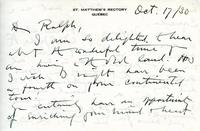 ST. MATTHEW'S RECTORY
QUEBEC
Oct. 17/30
Dr Ralph,
I am so delighted to hear
about the wonderful time you
are having in the Old Land.
I wish I might have been
a fourth on your continental
tour certainly have an opportunity
of enriching your mind & heart